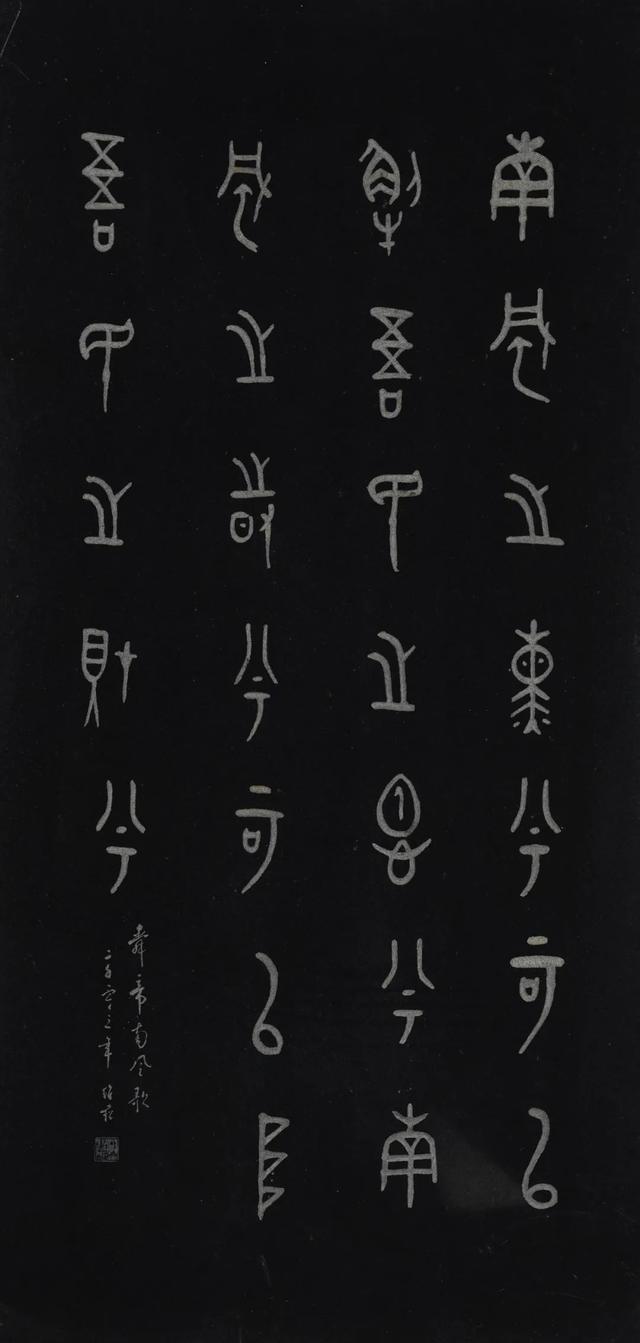 南風之熏兮可以
解吾民之昷兮南
風之時兮可以阜
吾民之財兮
舜帝南风歌
二千零三年